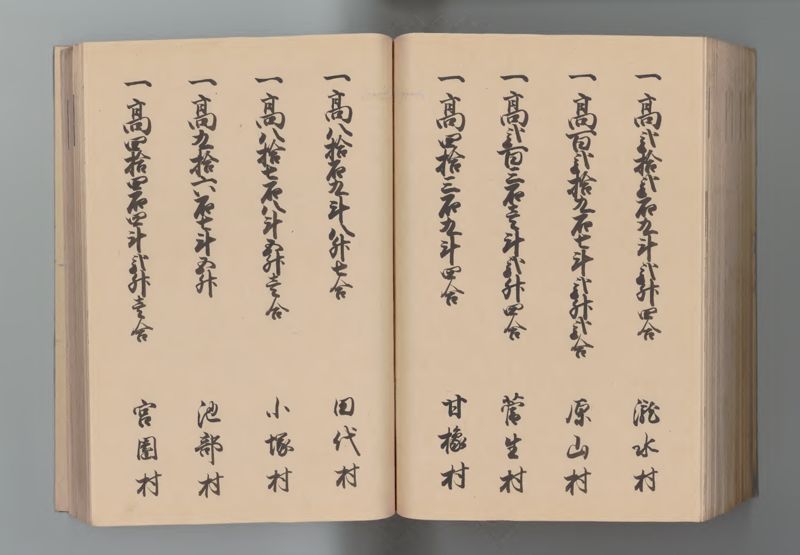 一高弐拾弐石九斗弐升四合 瀧水村
一高百弐拾九石七斗弐升弐合 原山村
一高弐百三石壱斗弐升四合 菅生村
一高四拾三石九斗四合 甘橡村
一高八拾石九斗八升七合 田代村
一高八拾七石八斗五升壱合 小塚村
一高九拾六石七斗五升 池部村
一高四拾四石四斗弐升壱合 宮園村